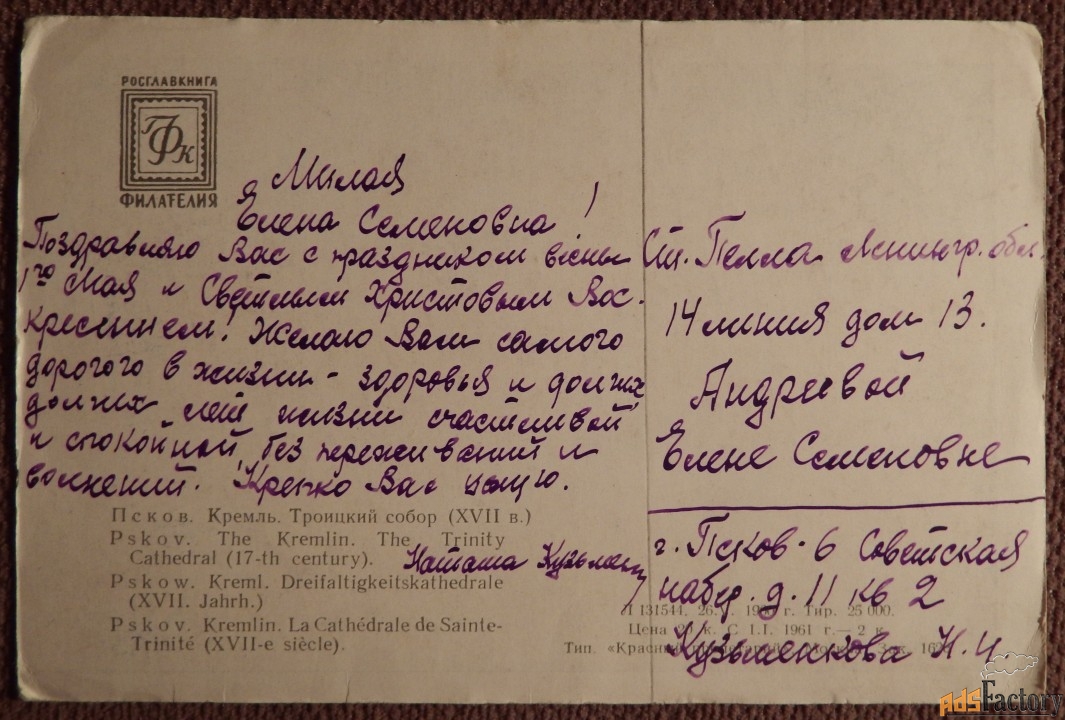 РОСГЛАВКНИГА
ФК
ФИЛАТЕЛИЯ
Милая
Елена Семеновна!
Поздравляю Вас с праздником весны
1го Мая и Светлым Христовым Вос-
кресением! Желаю Вам самого
дорогого в жизни - здоровья и долгих,
долгих лет жизни счастливой
и спокойной, без переживаний и
волнений. Крепко Вас целую.
Наташа
Псков. Кремль. Троицкий собор (XVII в.)
Pskov. The Kremlin. The Trinity
Cathedral (17-th century).
Pskow. Kreml. Dreifaltigkeitskathedrale
(XVII. Jahrh.)
Pskov. Kremlin. La Cathédrale de Sainte-
Trinité (XVII-e siècle).
Ст. Пелла Ленингр. обл.
14 линия дом 13.
Андреевой
Елене Семеновне
г. Псков-6 Советская
набер. д. 11 кв 2
Кузьменкова Н. И
Л 131544. 26. г. Тир. 25 000.
Цена к. С 1.I. 1961 г.— 2 к.
Тип. Зак.
AdsFactory